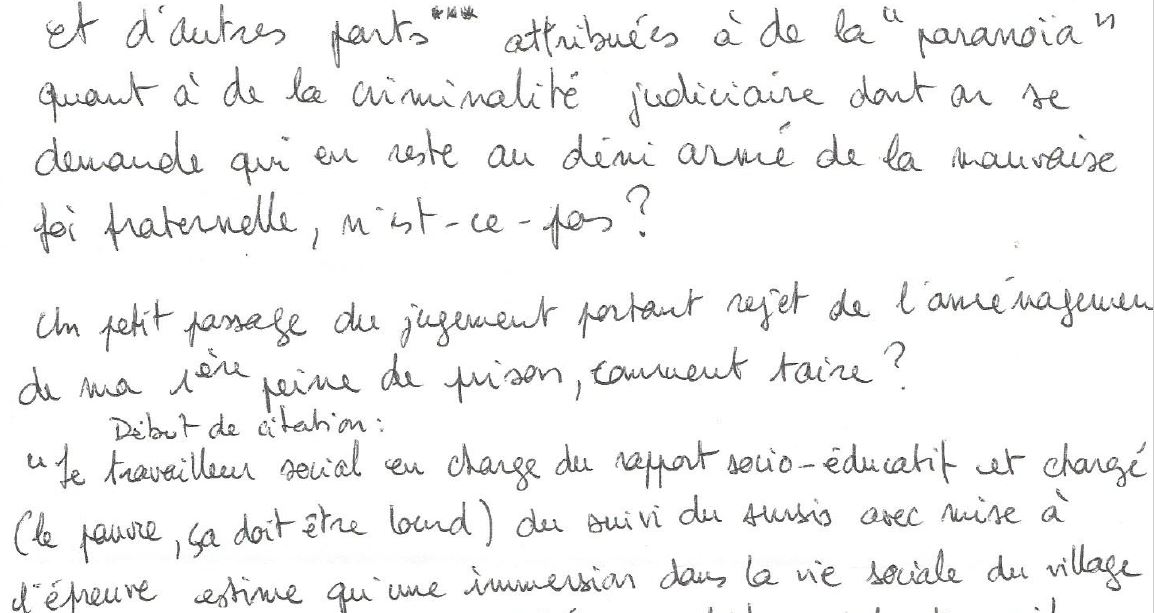 et d'autres parts*** attribuées à de la "paranoïa"
quant à de la criminalité judiciaire dont on se
demande qui en reste au déni armé de la mauvaise
foi fraternelle, n'est-ce-pas ?
Un petit passage du jugement portant rejet de l'aménagemen
de ma 1ère peine de prison, comment taire ?
Début de citation :
"Le travailleur social en charge du rapport socio-éducatif et chargé
(le pauvre, ça doit être lourd) du suivi du sursis avec mise à
l'épreuve estime qu'une immersion dans la vie sociale du village